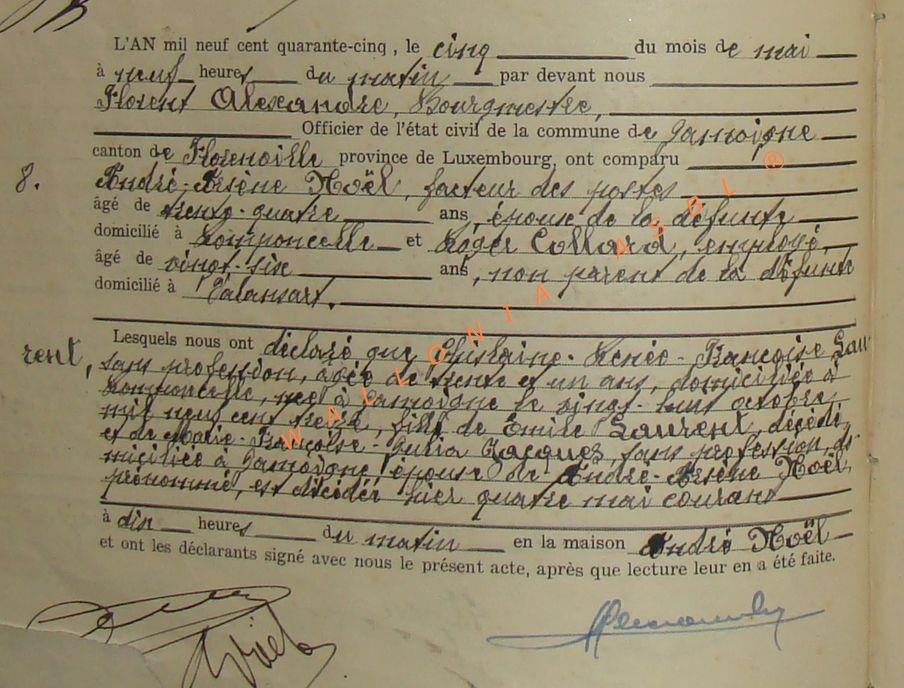 L'AN mil neuf cent quarante-cinq, le cinq du mois de mai
à neuf heures du matin par devant nous
Florent Alexandre, Bourgmestre,
Officier de l'état civil de la commune de Jamoigne
canton de Florenville province de Luxembourg, ont comparu
8. André-Arsène Noël, facteur des postes
âgé de trente-quatre ans, époux de la défunte
domicilié à Romponcelle et Roger Collard, employé,
âgé de vingt-six ans, non parent de la défunte
domicilié à Valansart.
Lesquels nous ont déclaré que Ghislaine-Renée-Françoise Lau-
rent, sans profession, âgée de trente et un ans, domiciliée à
Romponcelle, née à Jamoigne le vingt-huit octobre
mil neuf cent treize, fille de Emile Laurent, décédé,
et de Marie-Françoise-Julia Jacques, sans profession, do-
miciliée à Jamoigne, épouse de André-Arsène Noël,
prénommé, est décédée hier quatre mai courant
à dix heures du matin en la maison André Noël
et ont les déclarants signé avec nous le présent acte, après que lecture leur en a été faite.
WALLONIA ASBL ®